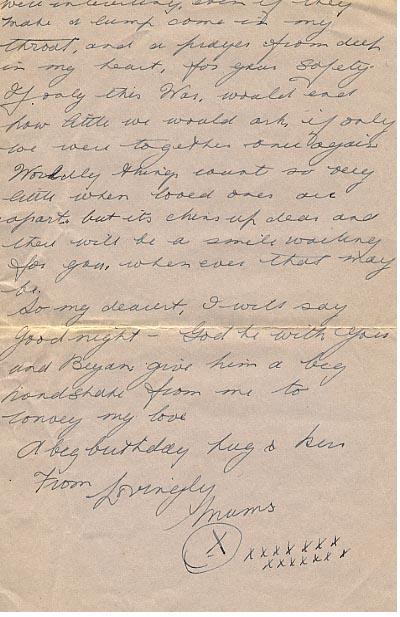 were interesting, even if they
make a lump come in my
throat, and a prayer from deep
in my heart, for your safety.
If only this War, would end
how little we would ask, if only
we were together once again
Worldly things count so very
little when loved ones are
apart. but its chins up dear and
there will be a smile waiting
for you, when ever that may
be.
So my dearest, I will say
Good night - God be with you
and Bryan, give him a big
handshake from me to
convey my love
A big birthday hug & kiss
From Lovingly
Mums
X x x x x x x x
x x x x x x x